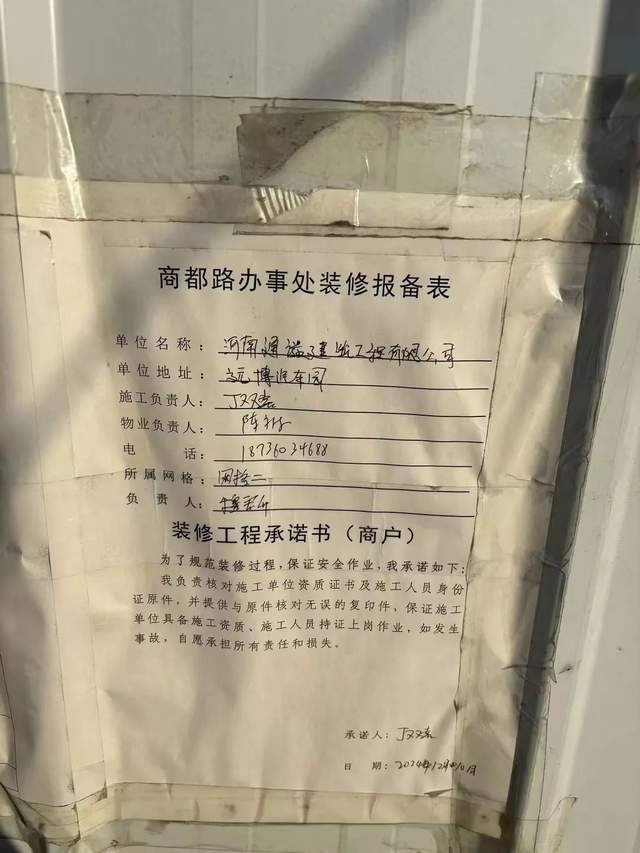 商都路办事处装修报备表
单位名称：河南通溢建筑工程有限公司
单位地址：远博汽车园
施工负责人：丁双喜
物业负责人：陈
电话：18736034688
所属网格：网格二
负责人：
装修工程承诺书（商户）
为了规范装修过程，保证安全作业，我承诺如下：
我负责核对施工单位资质证书及施工人员身份
证原件，并提供与原件核对无误的复印件，保证施工
单位具备施工资质、施工人员持证上岗作业，如发生
事故，自愿承担所有责任和损失。
承诺人：丁双喜
日期：2024年12月10日